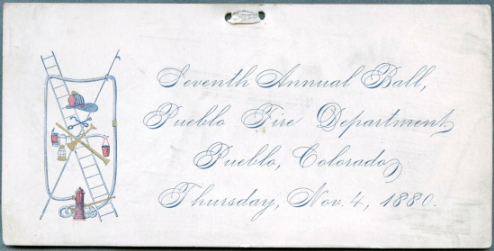 Seventh Annual Ball,
Pueblo Fire Department
Pueblo, Colorado,
Thursday, Nov. 4, 1880.